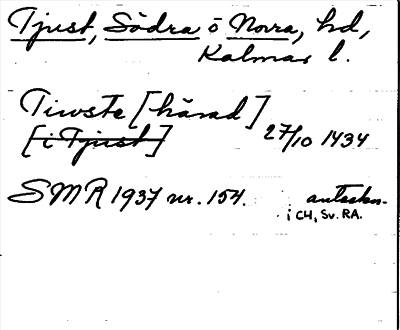 Tjust, Södra o Norra, hd,
Kalmar l.
Tiwste [härad]
[i Tjust] 27/10 1434
SMR 1937 nr. 154. anteckn.
i CH, Sv. RA.